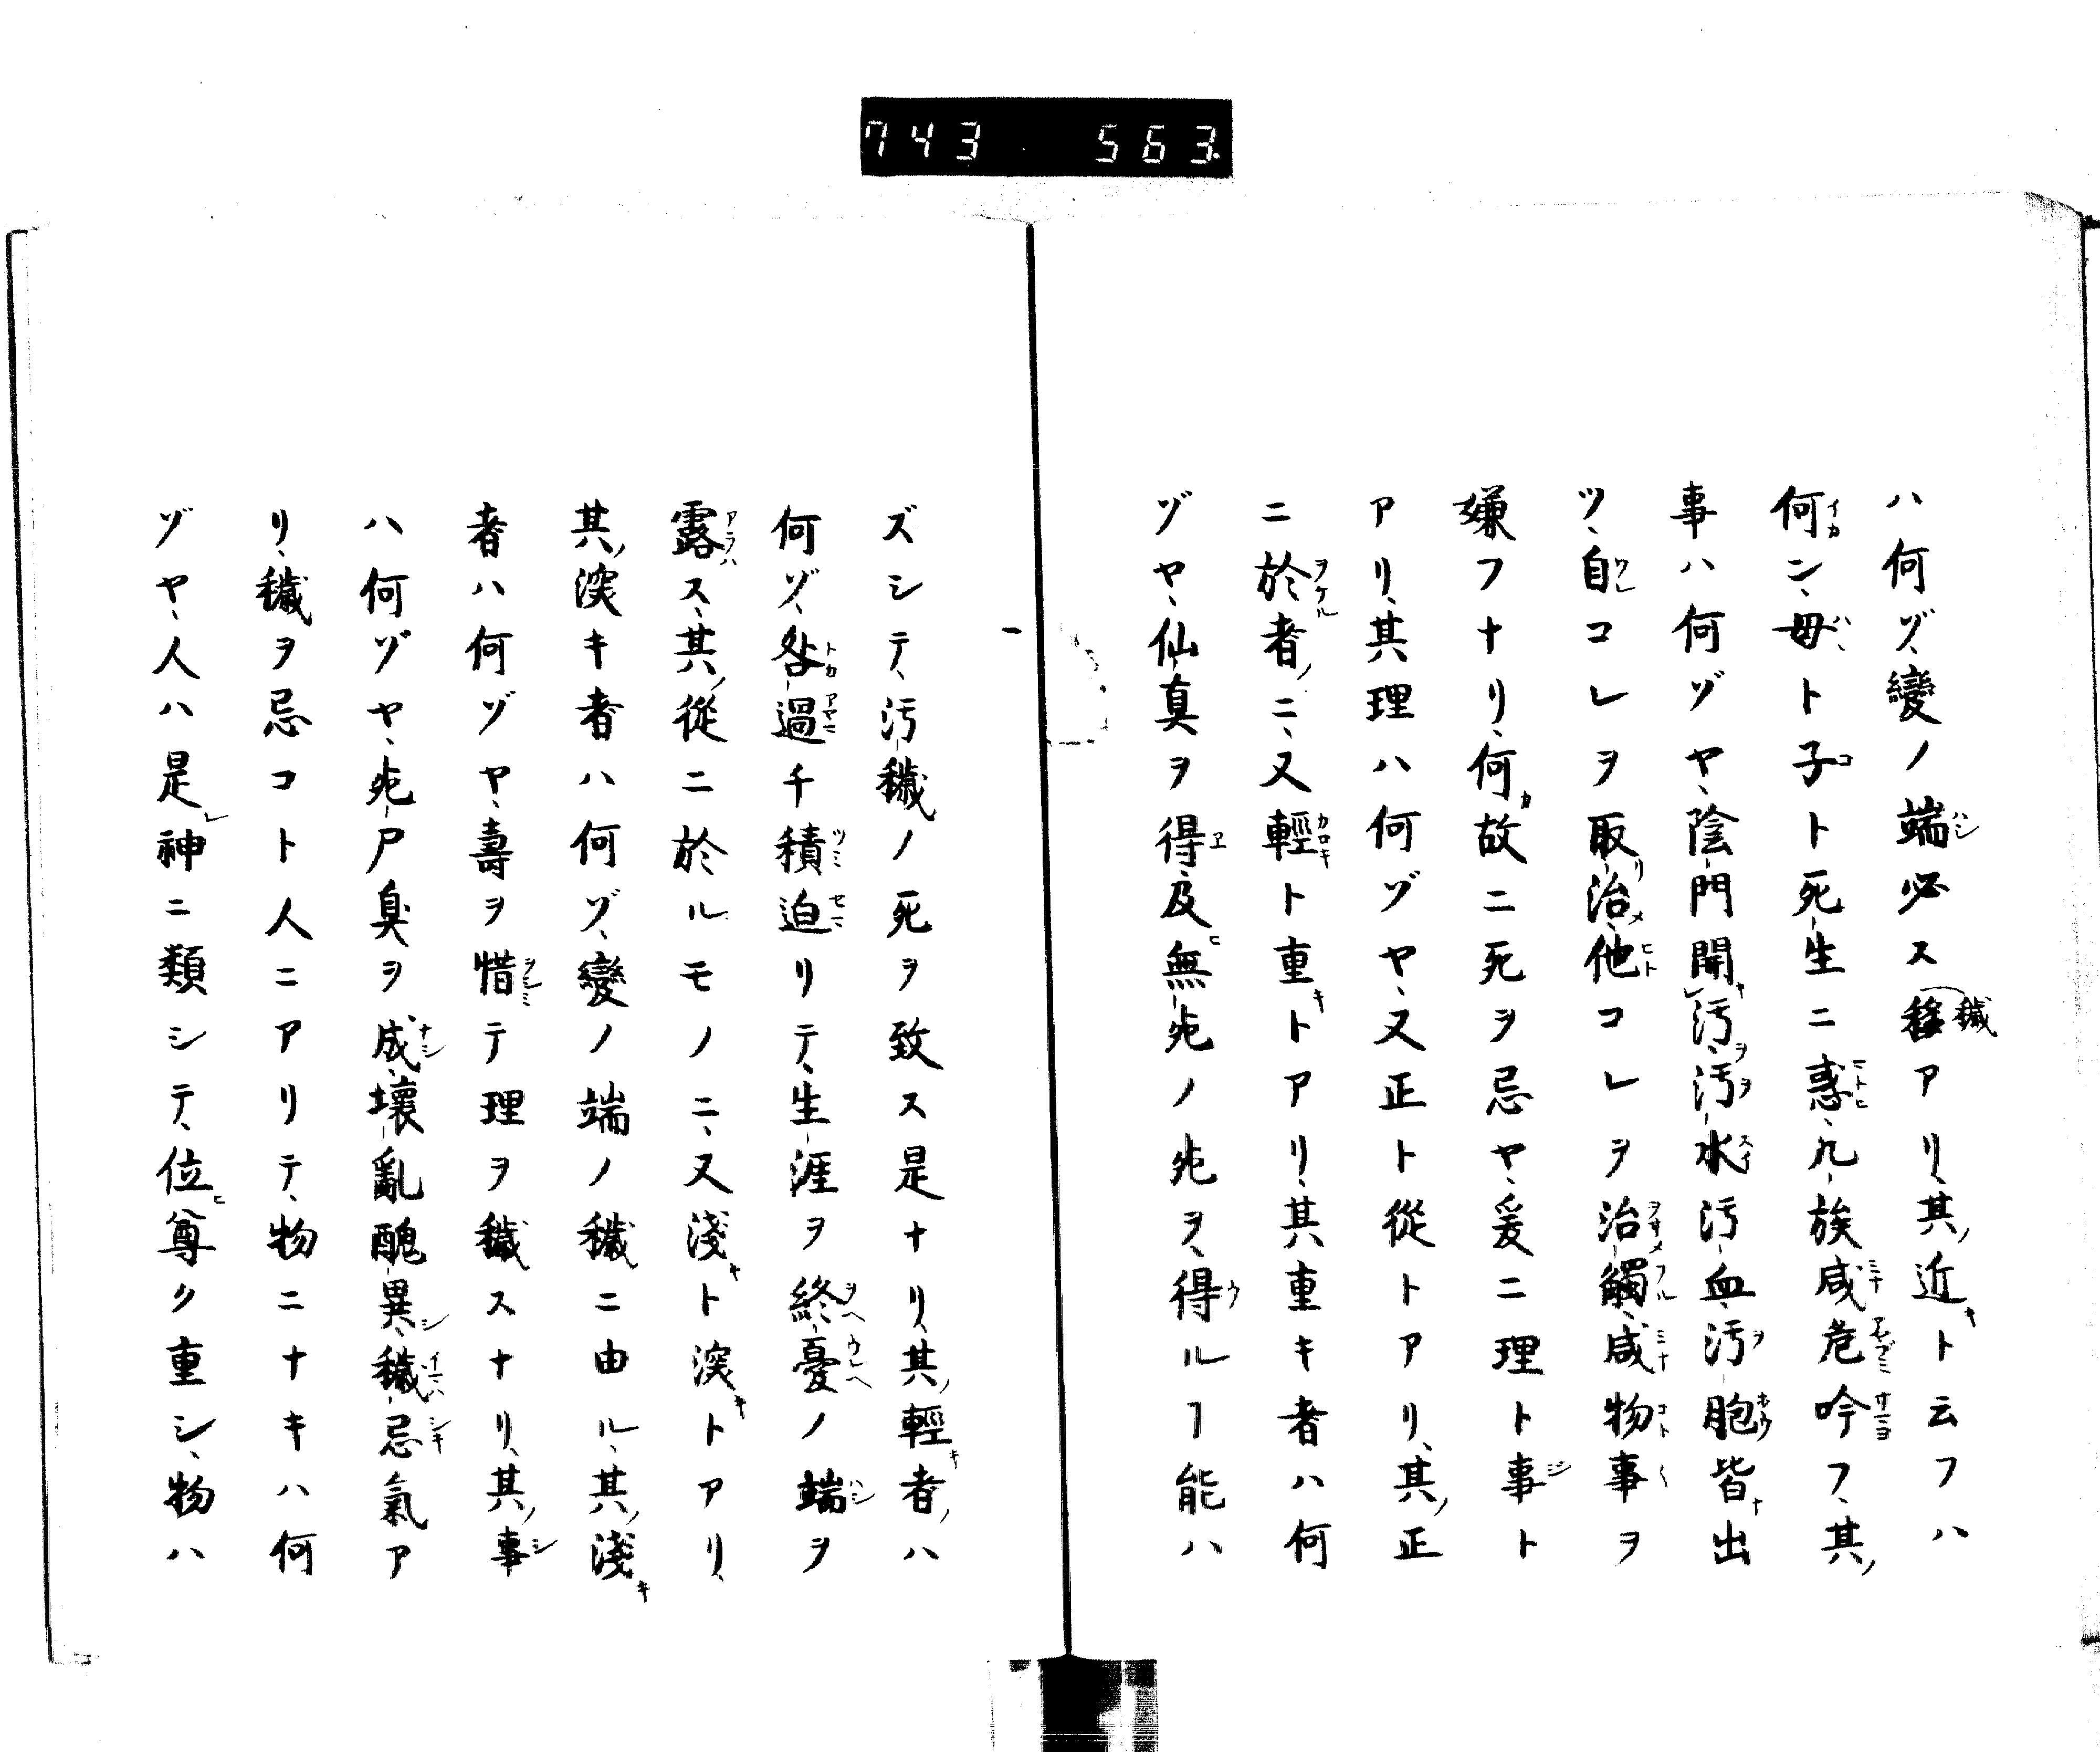 743 563
ハ何ゾ、變ノ端必ス穢アリ、其ノ近キト云フハ
何ン、母ト子ト死生ニ惑、九族咸危吟フ、其ノ
事ハ何ゾヤ、陰門開レ汚、汚水汚血汚胞皆出
ツ、自コレヲ取リ治メ、他コレヲ治觸、咸物事ヲ
嫌フナリ、何故ニ死ヲ忌ヤ、爰ニ理ト事ト
アリ、其理ハ何ゾヤ、又正ト從トアリ、其ノ正
ニ於者ノニ、又輕ト重キトアリ、其重キ者ハ何
ゾヤ、仙真ヲ得及ヒ無死ノ死ヲ、得ルヿ能ハ
ズシテ、汚穢ノ死ヲ致ス是ナリ、其ノ輕キ者ノハ
何ゾ、咎過千積迫リテ、生涯ヲ終、憂ノ端ヲ
露ス、其ノ從ニ於ルモノニ、又淺キト深キトアリ、
其ノ深キ者ハ何ゾ、變ノ端ノ穢ニ由ル、其ノ淺キ
者ハ何ゾヤ、壽ヲ惜テ理ヲ穢スナリ、其ノ事
ハ何ゾヤ、死尸臭ヲ成、壞亂醜異シ、穢忌氣ア
リ、穢ヲ忌コト人ニアリテ、物ニナキハ何
ゾヤ、人ハ是レ神ニ類シテ、位ヒ尊ク重シ、物ハ